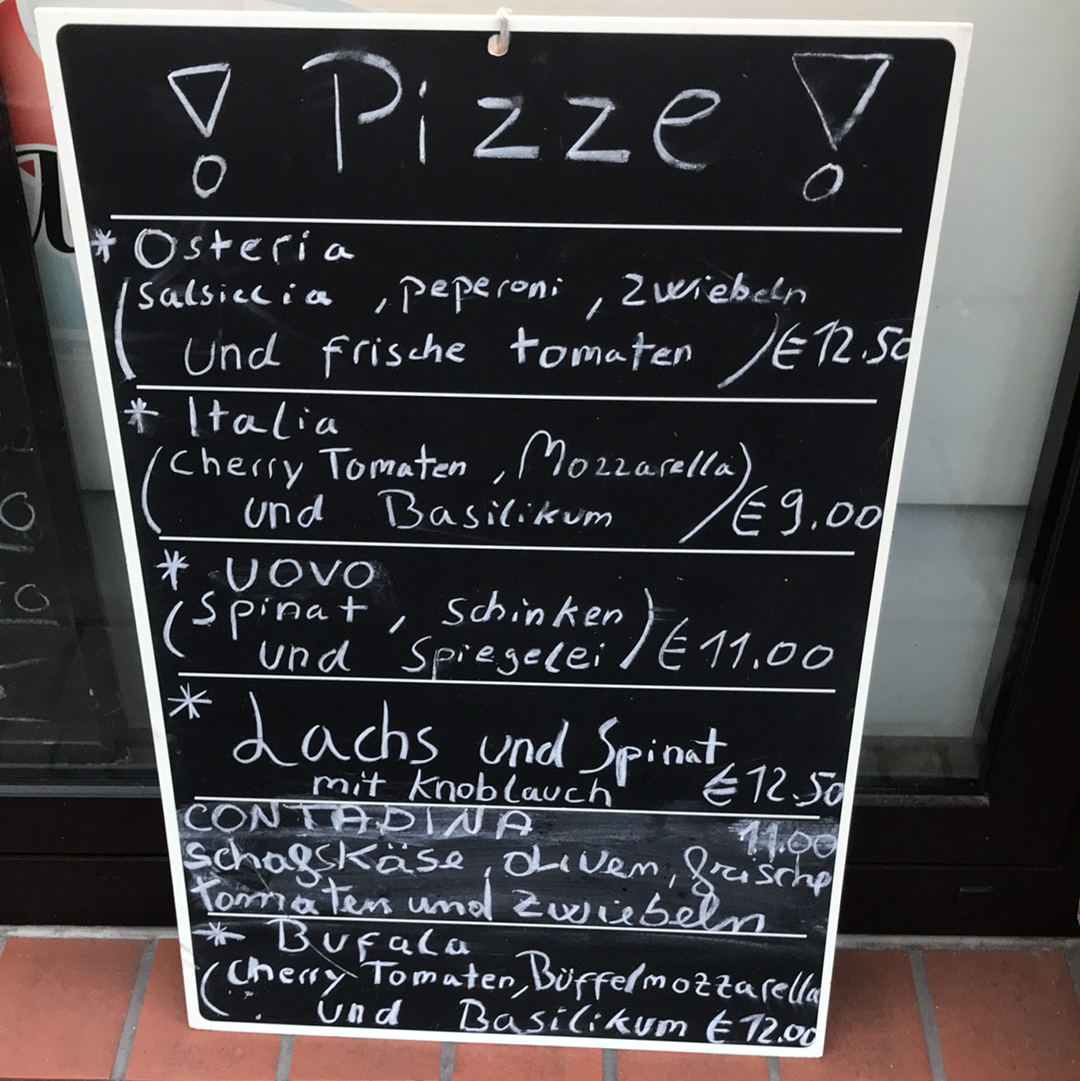 ! Pizze !
* Osteria
(Salsiccia , peperoni , Zwiebeln
und frische tomaten ) € 12.50
* Italia
(Cherry Tomaten , Mozzarella)
und Basilikum ) € 9.00
* UOVO
(Spinat , Schinken)
und Spiegelei ) € 11.00
* Lachs und Spinat
mit Knoblauch € 12.50
CONTADINA 11.00
schafskäse, oliven, frische
tomaten und zwiebeln
* Bufala
(Cherry Tomaten, Büffelmozzarella
und Basilikum € 12.00